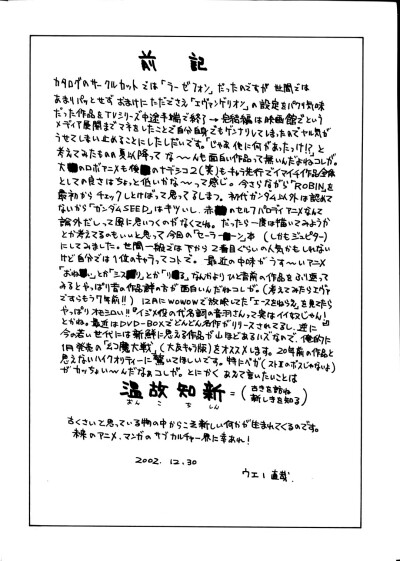 前記
カタログのサークルカットでは「ラーゼフォン」だったのですが世間では
あまりパッとせずおまけにただでさえ「エヴァンゲリオン」の設定をパクリ気味
だった作品をTVシリーズ中途半端で終了→完結編は映画館でという
メディア展開までマネをしたことで自分自身でもゲンナリしてしまったのでヤル気が
うせてしまい止めることにしたしだいです。「じゃあ他に何があったっけ!?」と
考えてみたものの夏以降ってな〜んも面白い作品って無いんだよねコレが。
大
のロボアニメも後
のナデシコ2(笑)もキャラ先行でイマイチ作品全体
としての良さはちょっと低いかな〜って感じ。今さらながら「ROBIN」を
最初からチェックしとけばって思ってるしまつ。初代ガンダム以外は認めて
ないから「ガンダムSEED」はキツいし、赤
のセルフパロディアニメなんて
論外だしって
に思いつくのがなくてね。だったら一度は描いてみようか
とか考えてるのもいいと思って今回の「セーラー
ン」本(しかもジュピター)
にしてみました。世間一般では下から2番目ぐらいの人気かもしれない
けど自分では1位のキャラってコトで。最近の中味がうす〜いアニメ
「おね
」とか「ミス
」とか「り
る」なんかよりひと昔前の作品をふり返って
みるとやっぱり昔の作品群の方が面白いんだねコレが。(考えてみたらエヴァ
ですらもう7年前!!)12月にWOWOWで放映していた「エースをねらえ」を見てたら
やっぱりオモシロい!!“イジメ役の代名詞の音羽さんって実はイイ女じゃん!”
とかね。最近はDVD-BOXでどんどん名作がリリースされてるし、逆に
今の若い世代には新鮮に思える作品が山ほどあるハズなので、俺的に
1月発売の「幻魔大戦」(大友キャラ版)をオススメします。20年前の作品と
思えないハイクオリティーに驚いてほしいです。特にベガ(ストIIのボスじゃないよ)
がカッちょい〜んだなぁコレが。とにかくあえて言いたいことは
温故知新=(古きを訪ね
新しきを知る)
おんこちしん
古くさいと思っている物の中からこそ新しい何かが生まれてくるのです。
未来のアニメ、マンガのサブカルチャー界に幸あれ!
2002.12.30
ウエノ直哉